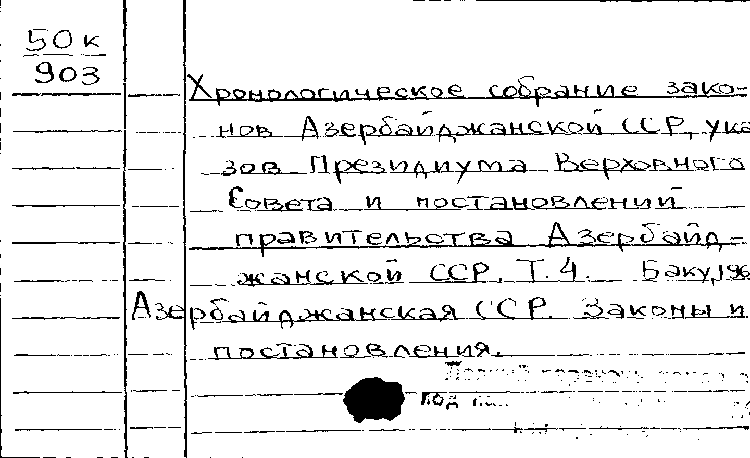 50к
903
Хронологическое собрание зако=
нов Азербайджанской ССР, ука
зов Президиума Верховного
Совета и постановлений
правительства Азербайд=
жанской ССР. Т.4. Баку, 196
Азербайджанская ССР. Законы и
постановления.
код